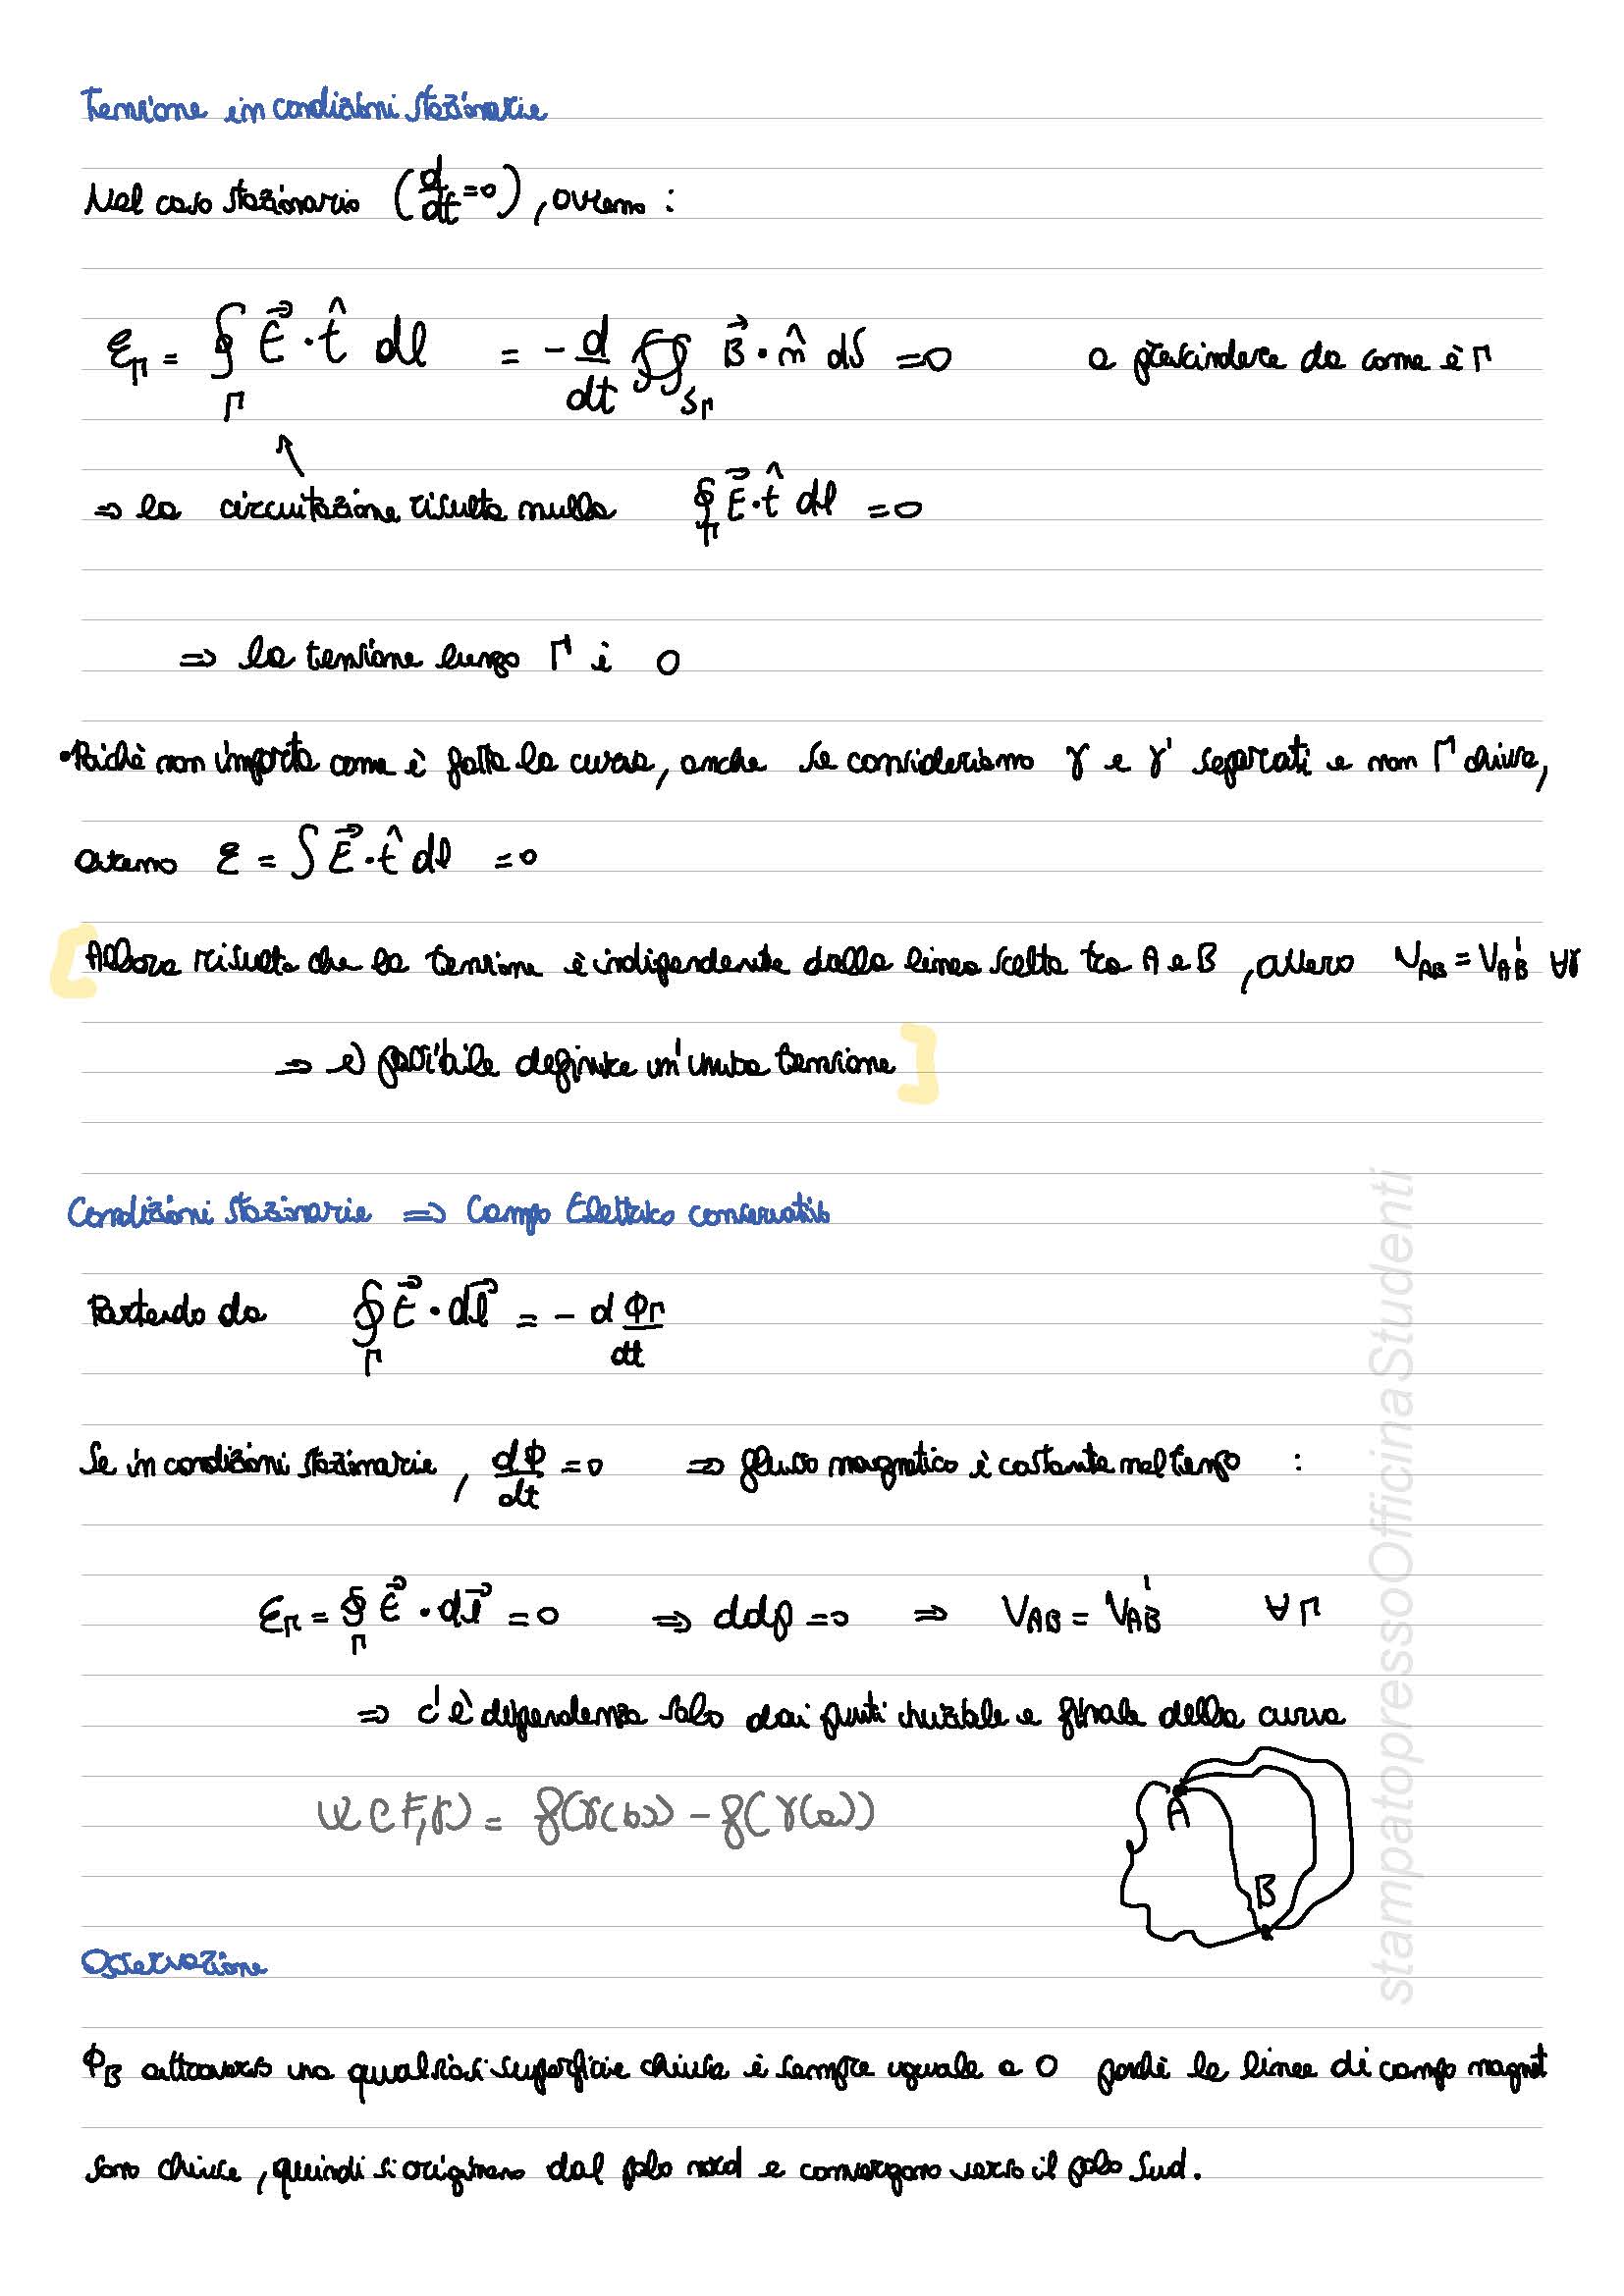 Tensione in condizioni stazionarie
Nel caso stazionario (d/dt =0), avremo :
ℰ_Γ = ∮_Γ E⃗ · t̂ dl = - d/dt ∯_{S_Γ} B⃗ · n̂ dS =0 a prescindere da come è Γ
⇒ la circuitazione risulta nulla ∮_Γ E⃗ · t̂ dl =0
⇒ la tensione lungo Γ è 0
•Poichè non importa come è fatta la curva, anche se consideriamo γ e γ' separati e non Γ chiusa,
avremo ℰ = ∫ E⃗ · t̂ dl =0
[Allora risulta che la tensione è indipendente dalla linea scelta tra A e B, ovvero V_AB = V'_AB ∀γ
⇒ è possibile definire un'unica tensione]
Condizioni stazionarie ⇒ Campo Elettrico conservativo
Partendo da ∮_Γ E⃗ · dl⃗ = - d Φ_Γ / dt
Se in condizioni stazionarie, dΦ/dt =0 ⇒ flusso magnetico è costante nel tempo :
ℰ_Γ = ∮_Γ E⃗ · dl⃗ =0 ⇒ ddp =0 ⇒ V_AB = V'_AB ∀Γ
⇒ c'è dipendenza solo dai punti iniziale e finale della curva
L(F,γ) = f(γ(b)) - f(γ(a))
A
B
Osservazione
Φ_B attraverso una qualsiasi superficie chiusa è sempre uguale a 0 perchè le linee di campo magnet
sono chiuse, quindi si originano dal polo nord e convergono verso il polo sud.
stampatopressoOfficinaStudenti